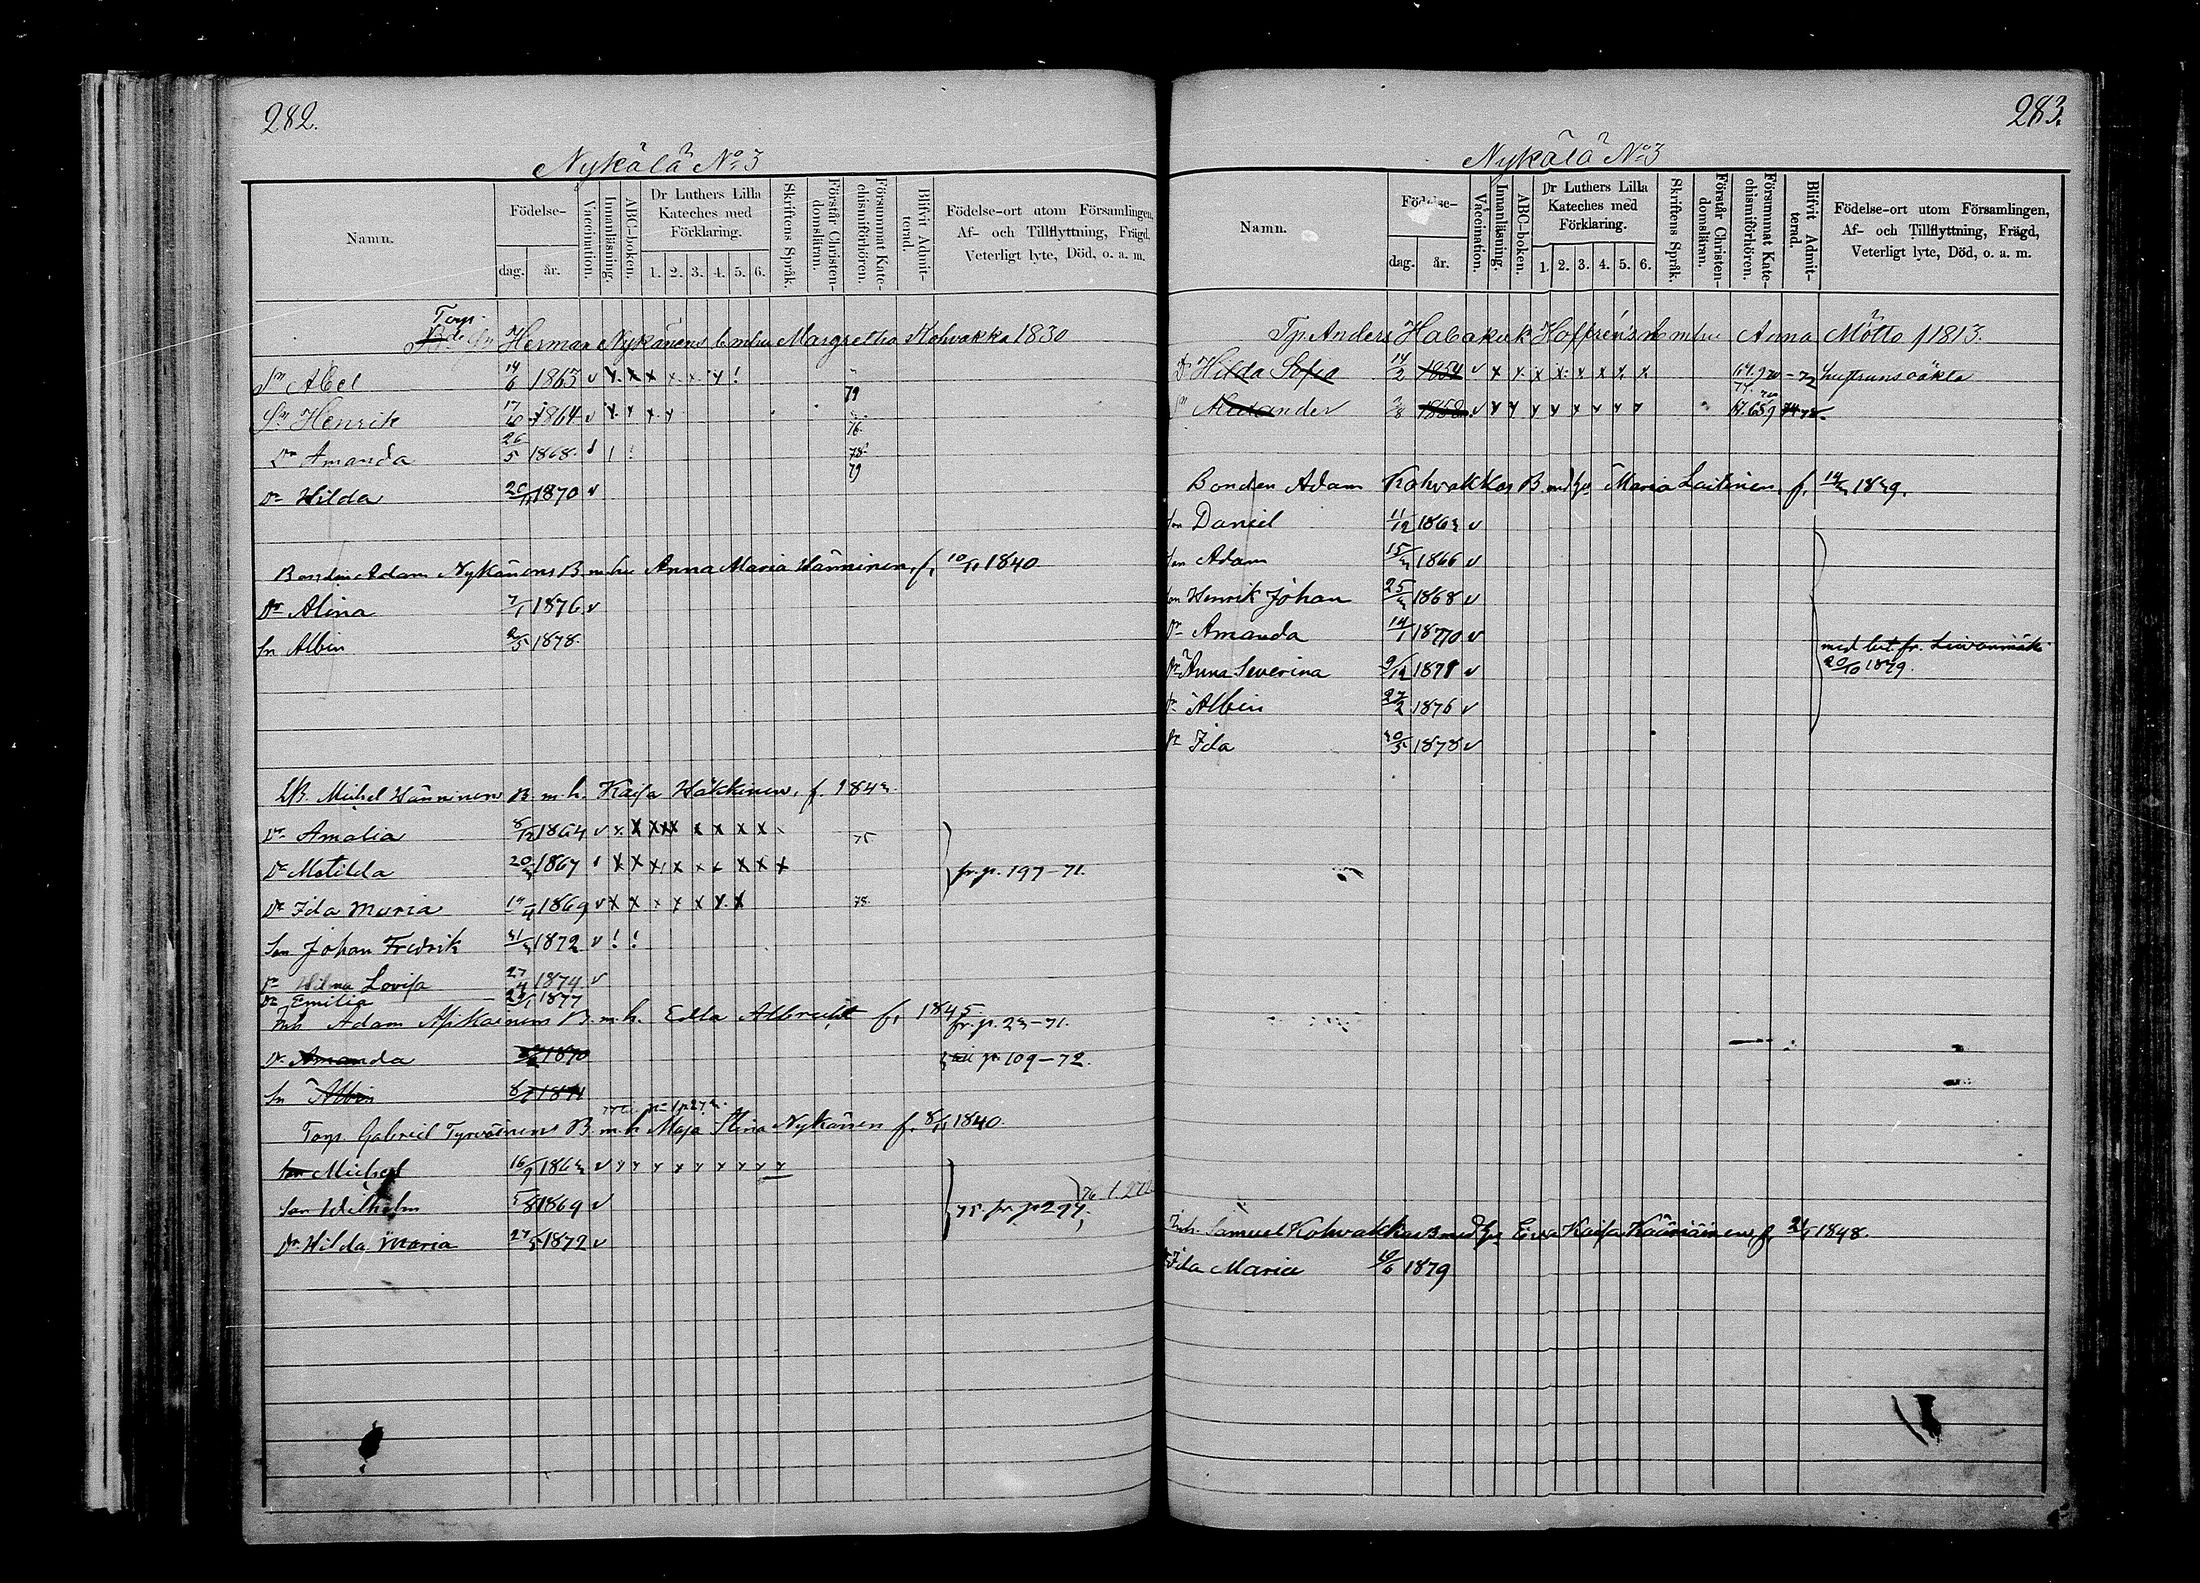 282.
Nykälä No 3
Namn.
Födelse-
dag.
år.
Vaccination.
Innanläsning.
ABC-boken.
Dr Luthers Lilla
Kateches med
Förklaring.
1. 2. 3. 4. 5. 6.
Skriftens Språk.
Förstår Christen-
domsläran.
Försummat Kate-
chismiförhören.
Blifvit Admit-
terad.
Födelse-ort utom Församlingen,
Af- och Tillflyttning, Frägd,
Veterligt lyte, Död, o. a. m.
Torp.
Herman Nykänens b m hu Margretha Kohvakka 1830
Sn Abel 14/6 1865 v 79
Sn Henrik 17/10 1864 v 76.
Dr Amanda 26/5 1868. 78. 79
Dr Hilda 1870 v
Bonden Adam Nykänens B. m hu Anna Maria Hänninen, f. 10/11 1840
Dr Alina 7/1 1876 v
Sn Albin 2/5 1878.
Michel Hänninens B. m. h. Kajsa Häkkinen, f. 1843.
Dr Amalia 8/12 1864 v x x x x x x x x x 75
Dr Matilda 20/3 1867 x x x x x x x x x fr. p. 197-71.
Dr Ida Maria 1869 v x x x x x x x 78.
Son Johan Fredrik 31/3 1872 v ! !
Dr Hilma Lovisa 27/4 1874 v
Dr Emilia 1877
Inh Adam Apikainens B. m. h. Edla Albrecht f. 1845
fr. p. 23-71.
Dr Amanda 1870 till p. 109-72.
Sn Albin 1871
Torp. Gabriel Tyrväinens B. m. h. Maja Stina Nykänen f. 8/11 1840.
Son Michel 16/9 1863 v
Son Wilhelm 5/8 1869 v 75. fr. p 297,
Dr Hilda Maria 27/5 1872 v
283.
Nykälä No 3
Namn.
Födelse-
dag.
år.
Vaccination.
Innanläsning.
ABC-boken.
Dr Luthers Lilla
Kateches med
Förklaring.
1. 2. 3. 4. 5. 6.
Skriftens Språk.
Förstår Christen-
domsläran.
Försummat Kate-
chismiförhören.
Blifvit Admit-
terad.
Födelse-ort utom Församlingen,
Af- och Tillflyttning, Frägd,
Veterligt lyte, Död, o. a. m.
Tp. Anders Habakuk Hoffrén's b m hu Anna Mötto f 1813.
Dr Hilda Sofia 14/2 1854 v x x x x x x x x
Sn Alexander 1858 v
Bonden Adam Kohvakkas B. med hu Maria Laitinen, f. 1839.
Son Daniel 11/12 1863 v
Son Adam 15/3 1866 v
Son Henrik Johan 25/3 1868 v
Dr Amanda 14/1 1870 v
Dr Anna Severina 9/12 1871 v
med bet. fr. Leivonmäki
20/10 1879.
Albin 27/2 1876 v
Dr Ida 30/5 1878 v
Inh. Samuel Kohvakkas B med hu Eva Kajsa Kääriäinen, f. 1848.
Ida Maria 1879